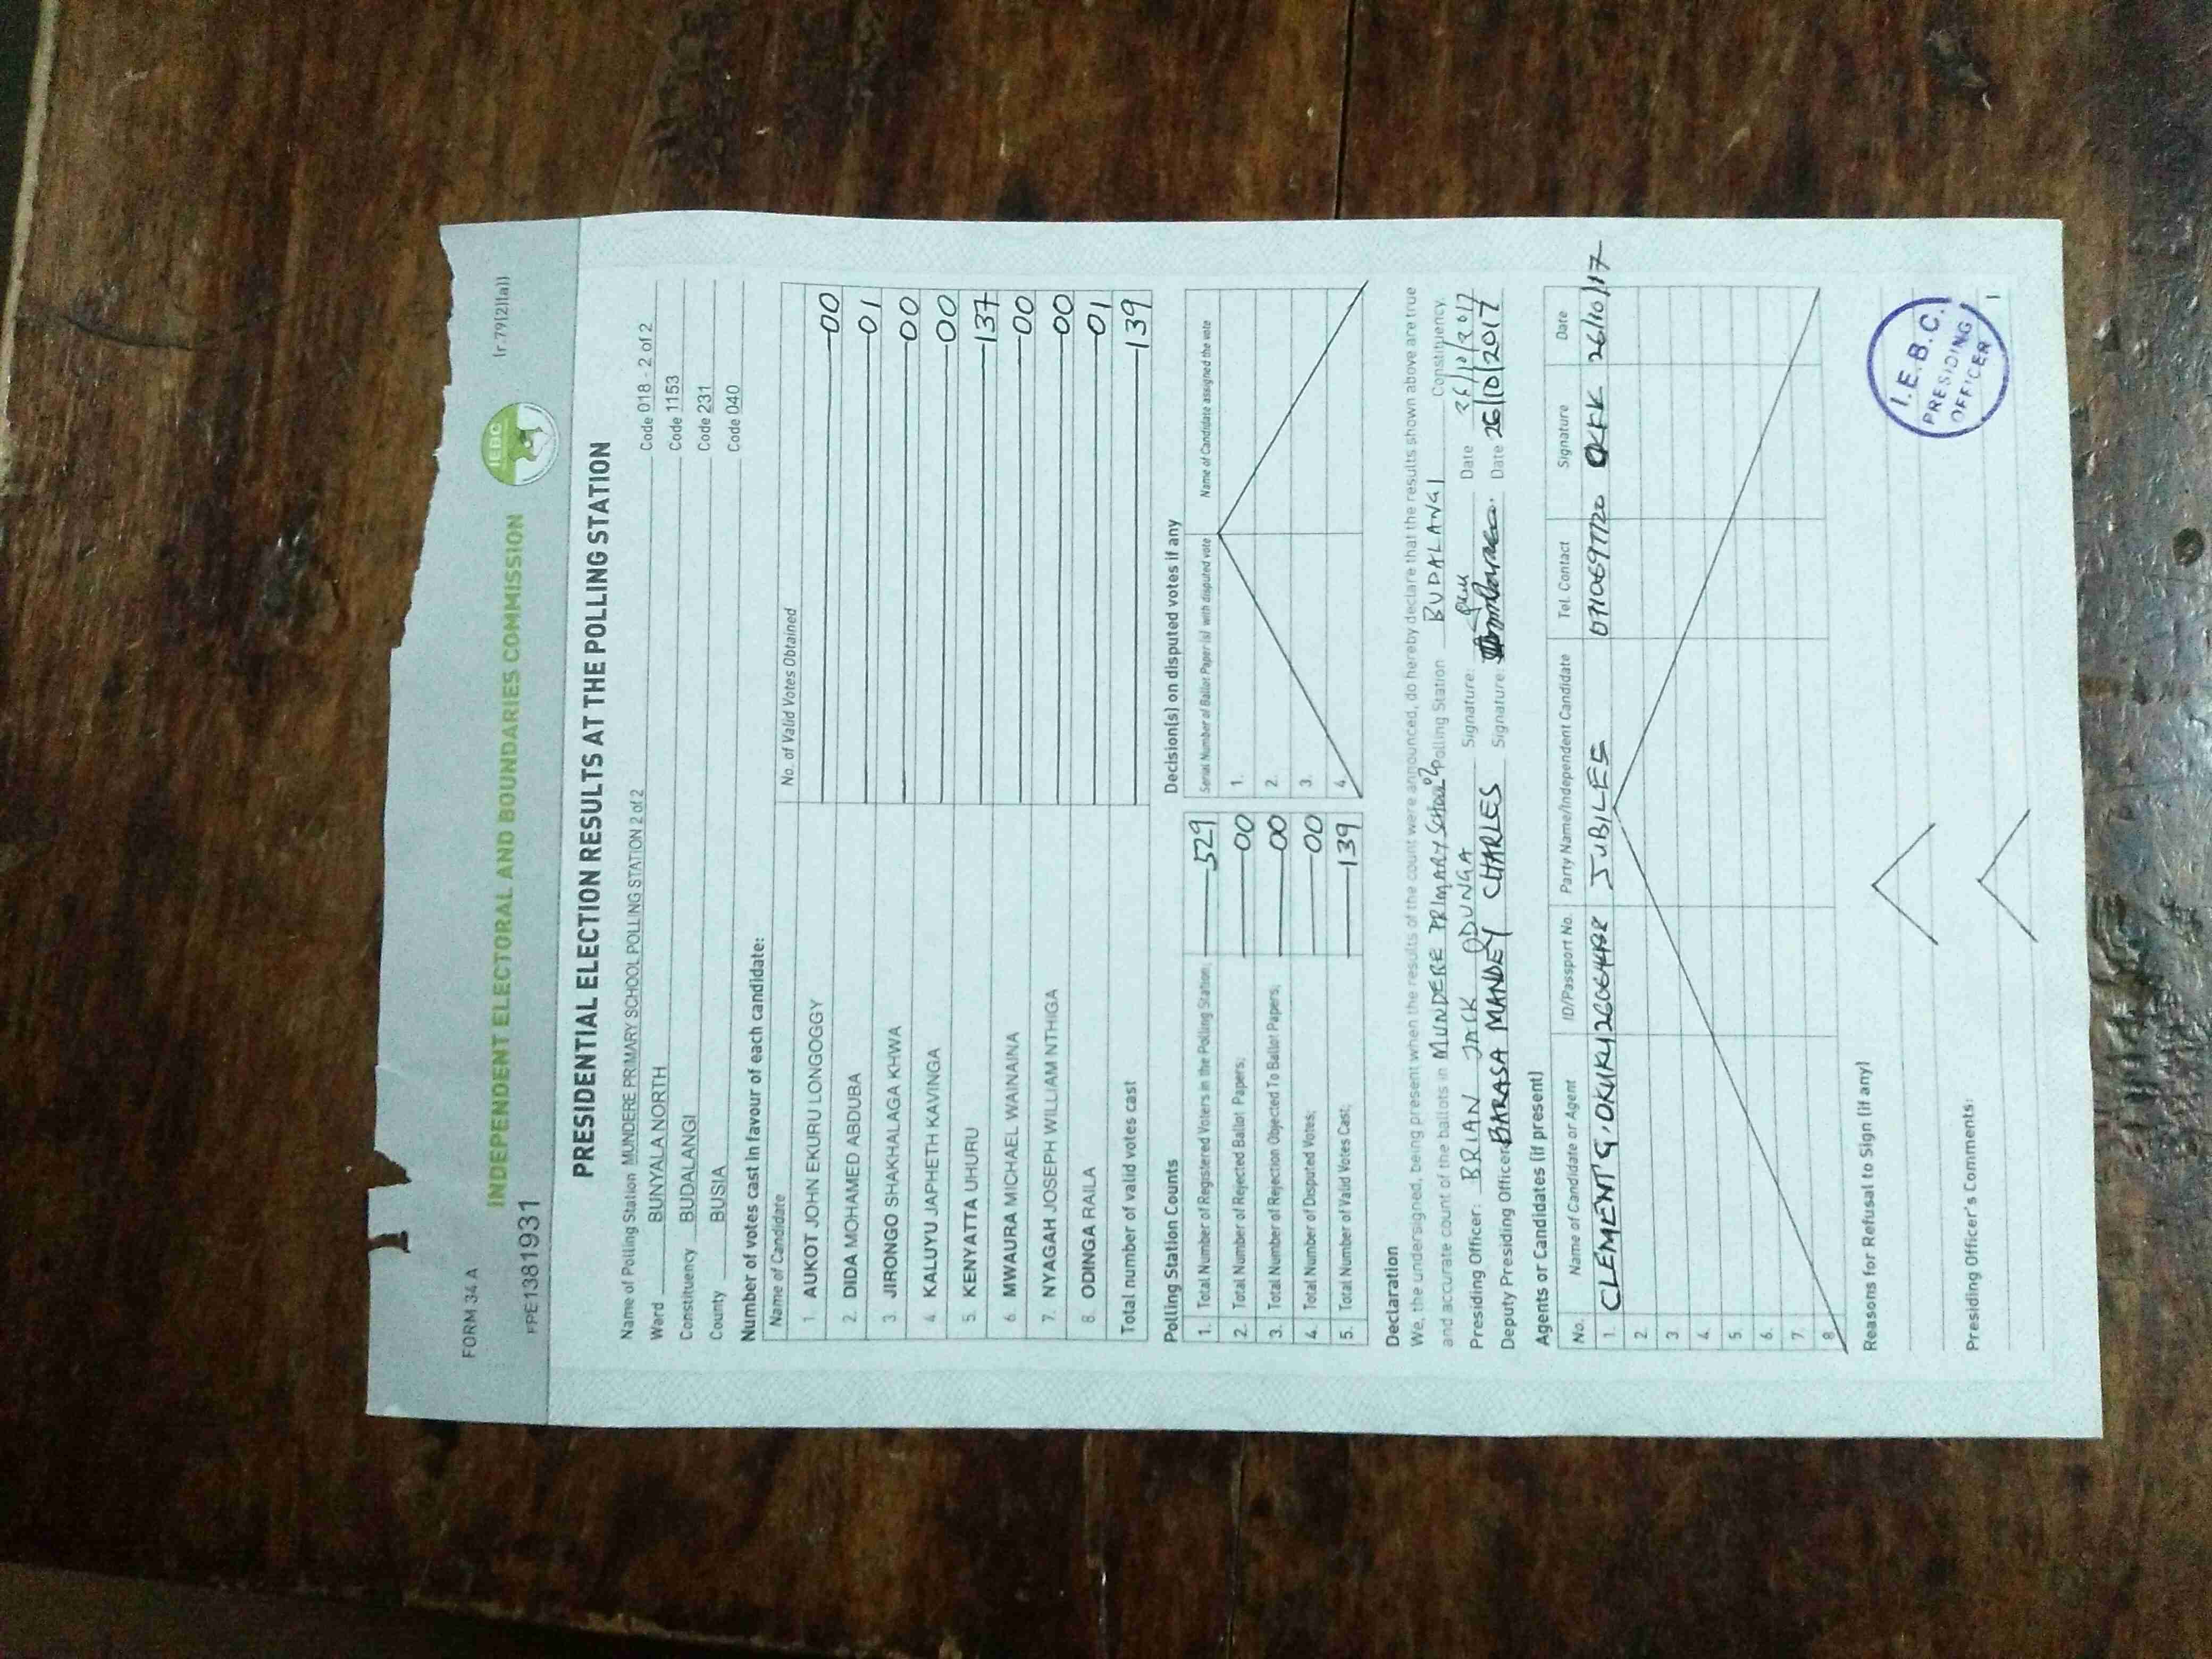 FORM 34 A (r.79(2)(a))
INDEPENDENT ELECTORAL AND BOUNDARIES COMMISSION
IEBC
FPE1381931
PRESIDENTIAL ELECTION RESULTS AT THE POLLING STATION
Name of Polling Station MUNDERE PRIMARY SCHOOL POLLING STATION 2 of 2 Code 018 - 2 of 2
Ward BUNYALA NORTH Code 1153
Constituency BUDALANGI Code 231
County BUSIA Code 040
Number of votes cast in favour of each candidate:
Name of Candidate No. of Valid Votes Obtained
1. AUKOT JOHN EKURU LONGOGGY 00
2. DIDA MOHAMED ABDUBA 01
3. JIRONGO SHAKHALAGA KHWA 00
4. KALUYU JAPHETH KAVINGA 00
5. KENYATTA UHURU 137
6. MWAURA MICHAEL WAINAINA 00
7. NYAGAH JOSEPH WILLIAM NTHIGA 00
8. ODINGA RAILA 01
Total number of valid votes cast 139
Polling Station Counts
1. Total Number of Registered Voters in the Polling Station; 529
2. Total Number of Rejected Ballot Papers; 00
3. Total Number of Rejection Objected To Ballot Papers; 00
4. Total Number of Disputed Votes; 00
5. Total Number of Valid Votes Cast; 139
Decision(s) on disputed votes if any
Serial Number of Ballot Paper (s) with disputed vote Name of Candidate assigned the vote
1.
2.
3.
4.
Declaration
We, the undersigned, being present when the results of the count were announced, do hereby declare that the results shown above are true
and accurate count of the ballots in MUNDERE PRIMARY SCHOOL Polling Station BUDALANGI Constituency.
Presiding Officer: BRIAN JACK ODUNGA Signature: Date 26/10/2017
Deputy Presiding Officer: BARASA MANDEY CHARLES Signature: Date 26/10/2017
Agents or Candidates (if present)
No. Name of Candidate or Agent ID/Passport No. Party Name/Independent Candidate Tel. Contact Signature Date
1. CLEMENT G. OKUKU JUBILEE 26/10/17
2.
3.
4.
5.
6.
7.
8.
Reasons for Refusal to Sign (if any)
Presiding Officer's Comments:
I.E.B.C.
PRESIDING
OFFICER
1